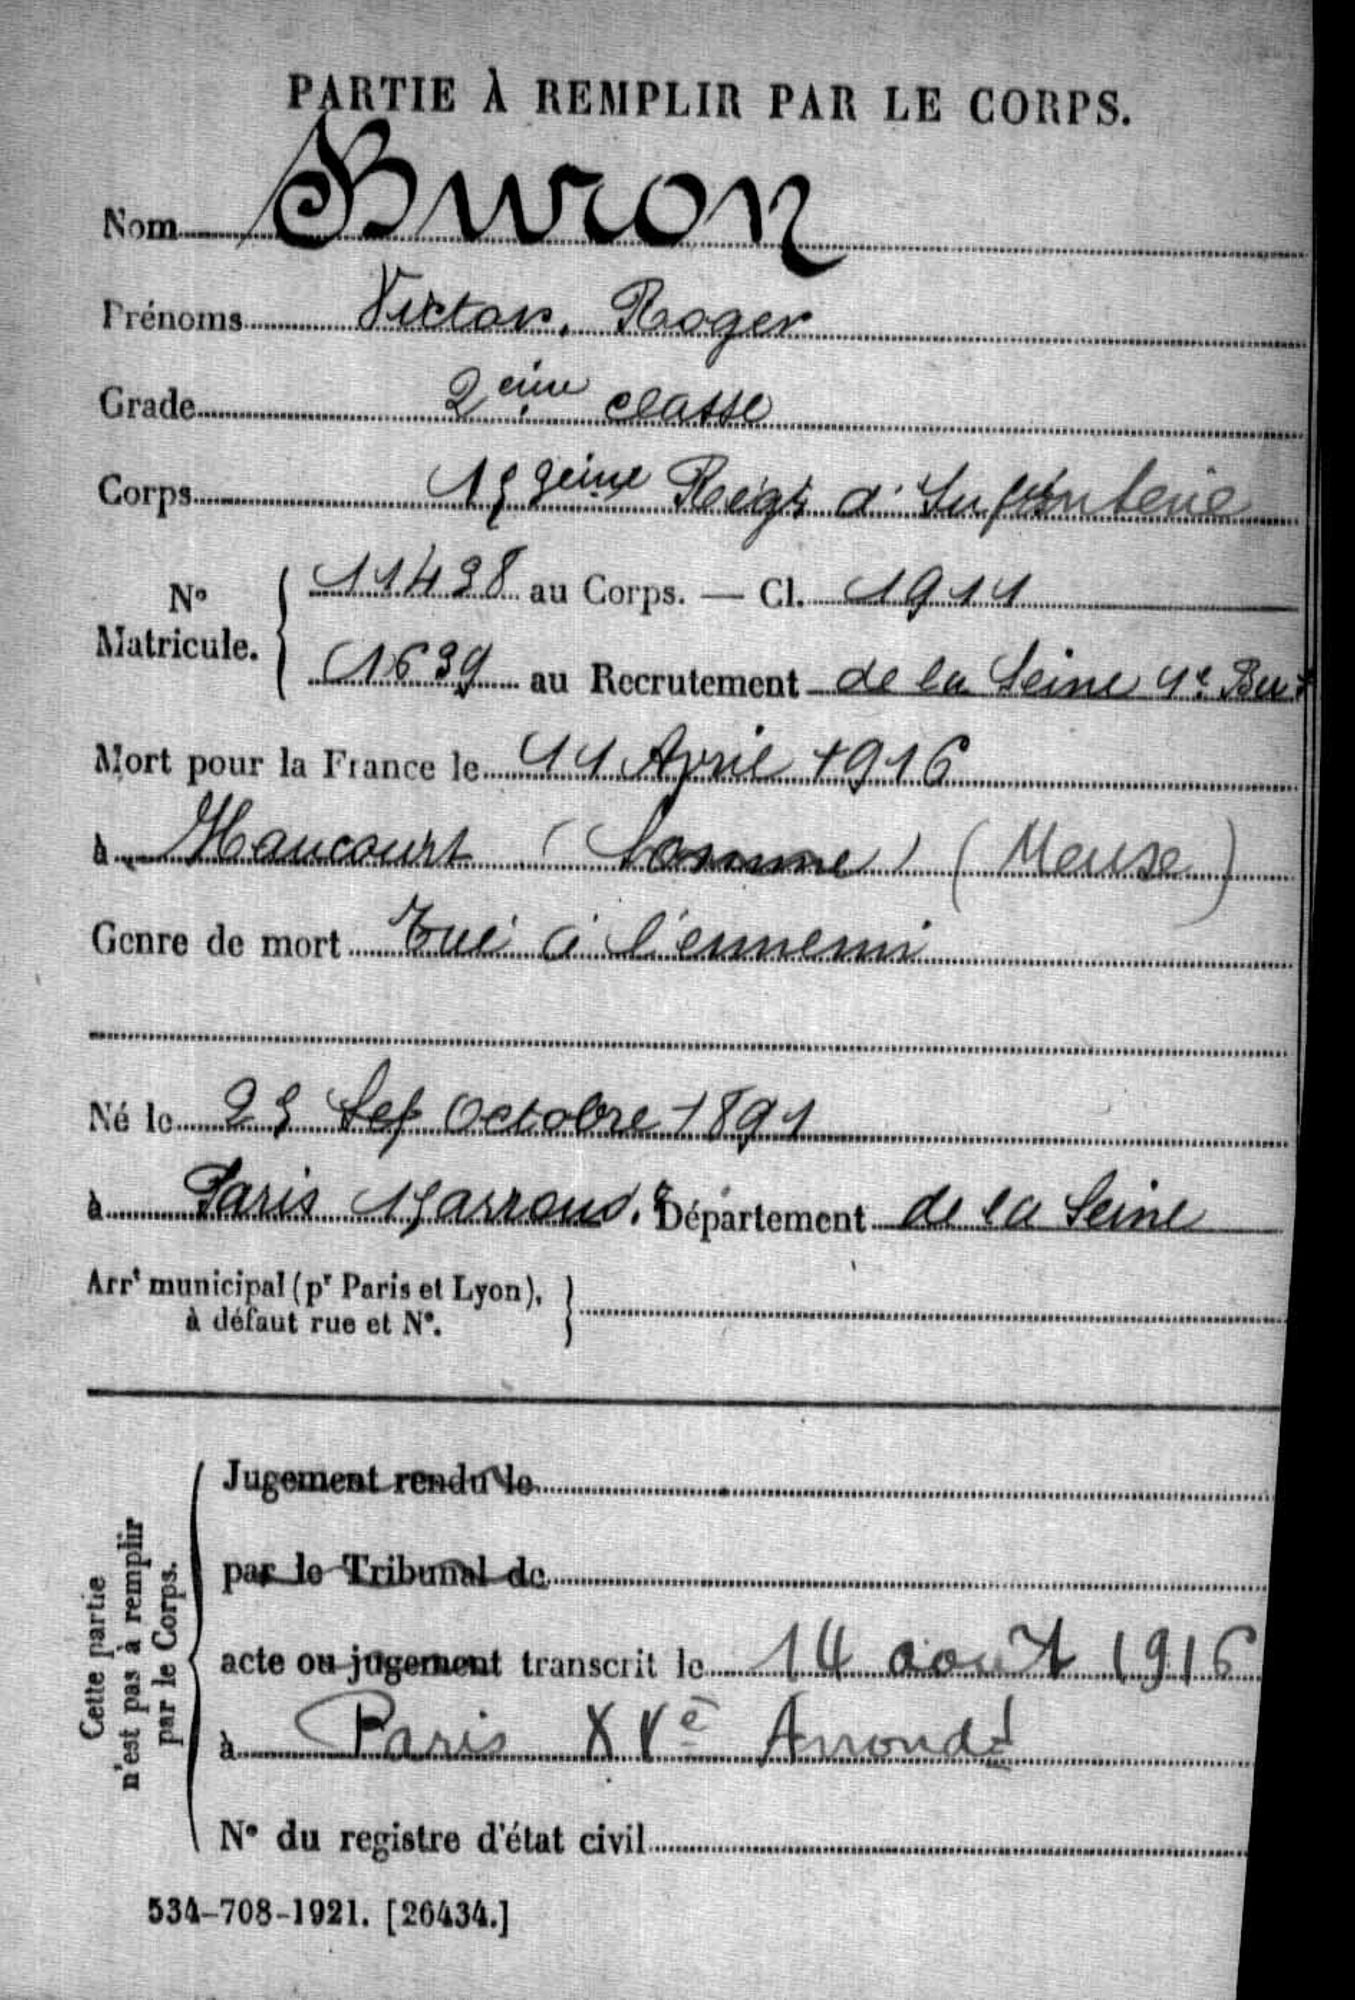 PARTIE À REMPLIR PAR LE CORPS.
Nom Buron
Prénoms Victor, Roger
Grade 2eime classe
Corps Regt d'Infanterie
No Matricule. 11438 au Corps. — Cl. 1911
1639 au Recrutement de la Seine 4e But
Mort pour la France le 11 Avril 1916
à Haucourt (Somme) (Meuse)
Genre de mort Tué à l'ennemi
Né le 25 Sep Octobre 1891
à Paris 15 arrond. Département de la Seine
Arrt municipal (pr Paris et Lyon),
à défaut rue et No.
Cette partie
n'est pas à remplir
par le Corps.
Jugement rendu le
par le Tribunal de
acte ou jugement transcrit le 14 aout 1916
à Paris XVe Arrondt
No du registre d'état civil
534-708-1921. [26434.]